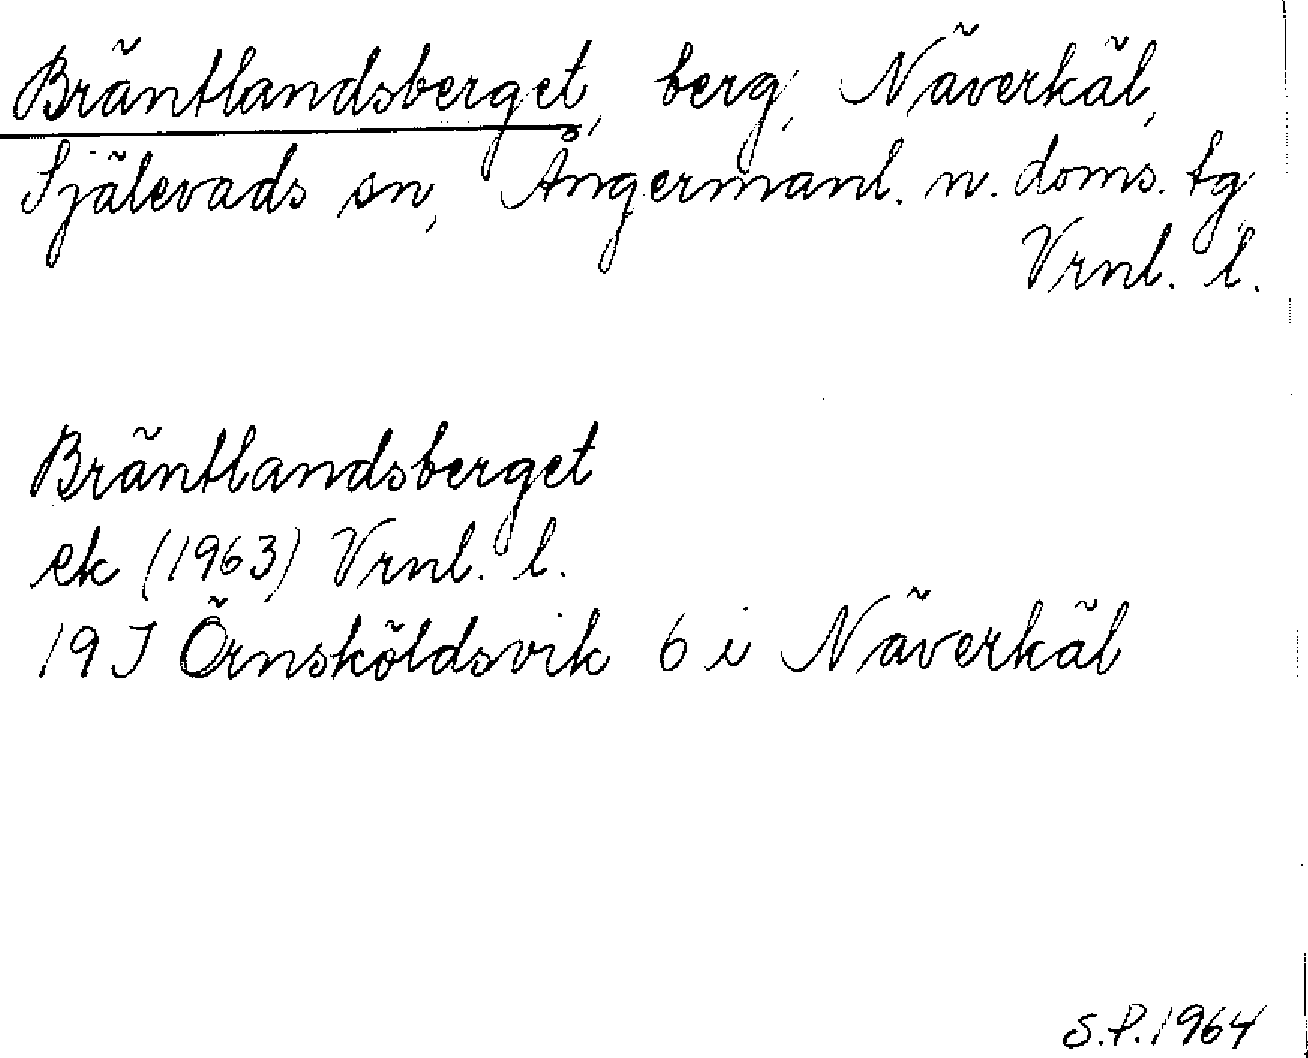 Bräntlandsberget, berg, Näverkäl,
Själevads sn, Ångermanl. n. doms. tg
Vrnl. l.
Bräntlandsberget
ek (1963) Vrnl. l.
19J Örnsköldsvik 6 i Näverkäl
S.P. 1964